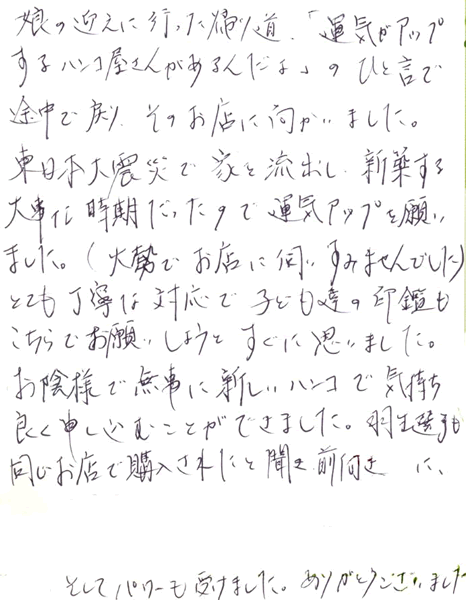 娘の迎えに行った帰り道、「運気がアップ
するハンコ屋さんがあるんだよ」のひと言で
途中で戻り、そのお店に向かいました。
東日本大震災で家を流出し、新築する
大事な時期だったので運気アップを願い
ました。(大勢でお店に伺いすみませんでした)
とても丁寧な対応で子ども達の印鑑も
こちらでお願いしようとすぐに思いました。
お陰様で無事に新しいハンコで気持ち
良く申し込むことができました。羽生選手も
同じお店で購入されたと聞き前向きに、
そしてパワーも受けました。ありがとうございました